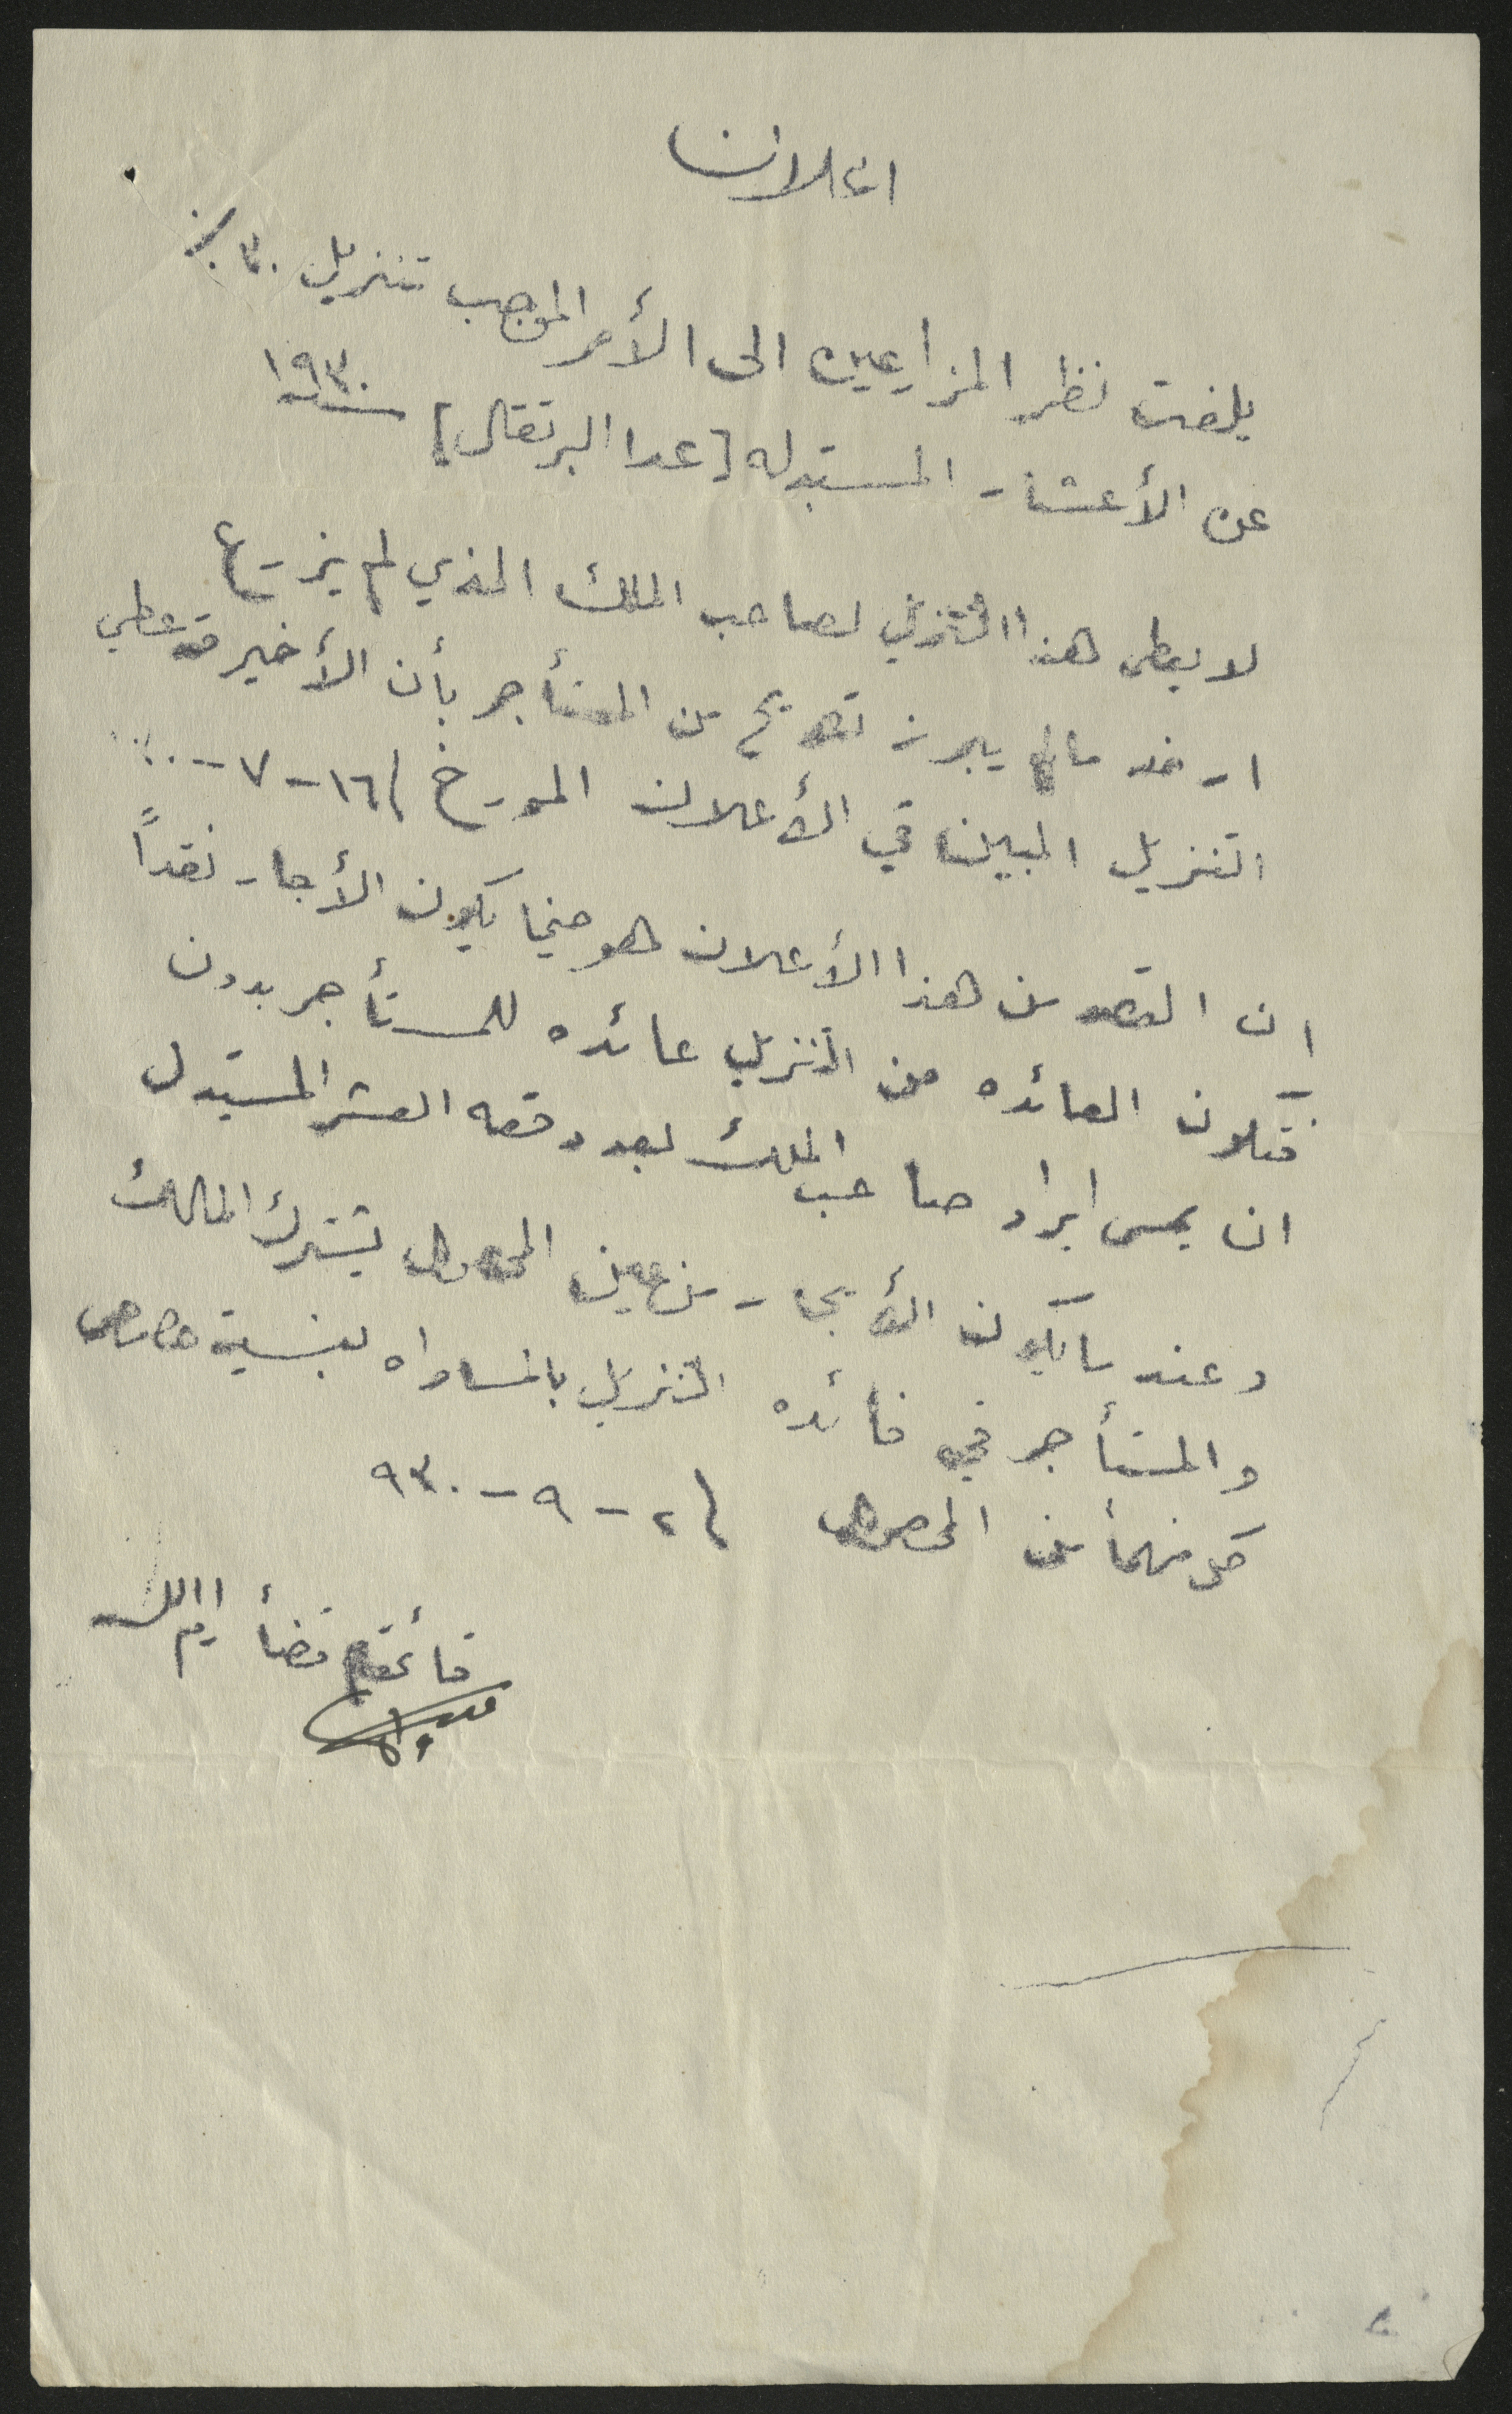 اعلان
يلفت نظر المزارعين الى الأمر الموجب تنزيل ٣٠ ٪
عن الأعشار المستبدله [عدا البرتقال] سنة ١٩٣٠
لا يعطى هذا التنزيل لصاحب الملك الذي لم يزرع
ارضه مالم يبرز تصريح من المستأجر بأن الأخير قد عطي
التنزيل المبين في الأعلان المورخ ١٦-٧-
ان القصد من هذا الأعلان هو حينما يكون الأجار نقداً
فتكون العائده من التنزيل عائده للمستأجر بدون
ان يمس ايراد صاحب الملك بعد دفعه العشر المستبدل
وعند ما يكون الأيجار من عين المحصول يشترك المالك
والمستأجر في فائده التنزيل بالمساواه بنسبة حصص
كل منهما من المحصول ٢-٩-٩٣٠
قائمقام قضأ رام الله